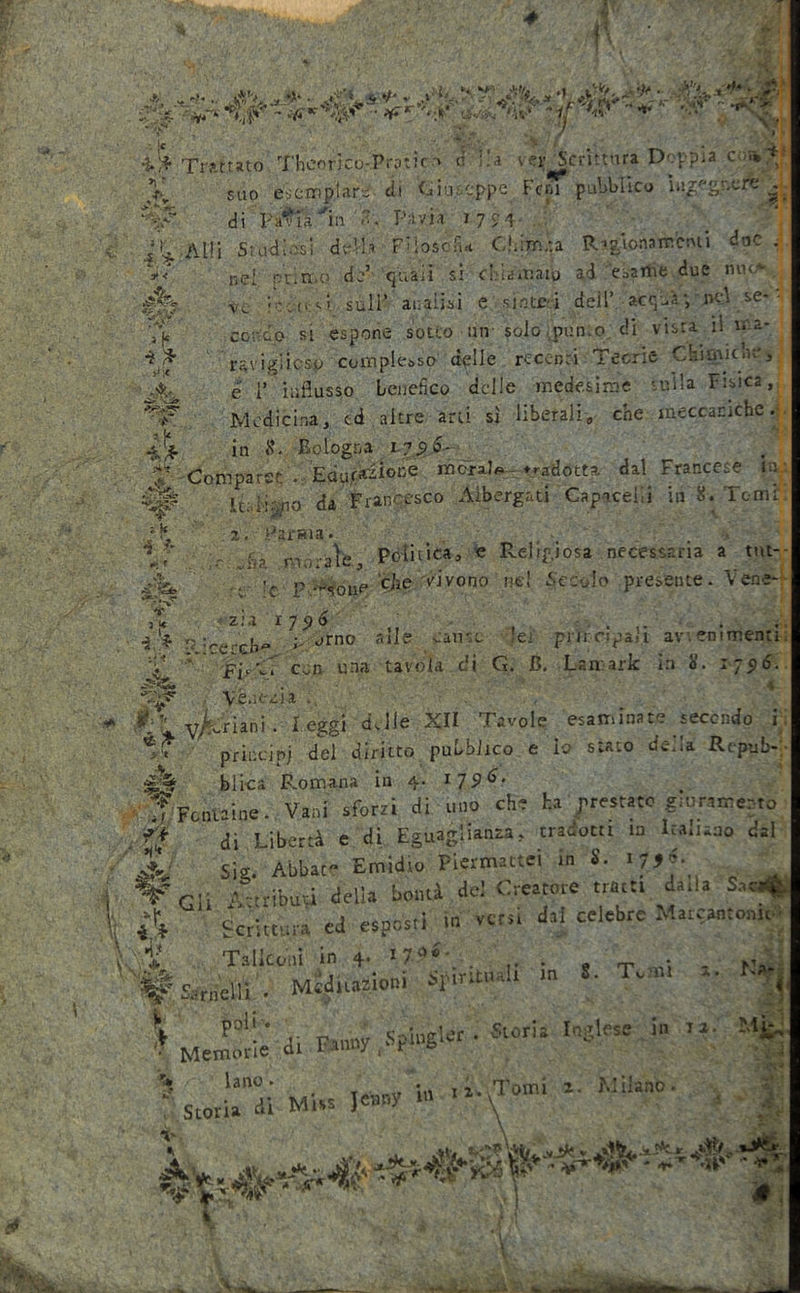 Trattato Theorico-Pratico della ver Scrittura Doppia con
suo esemplare di Giuseppe Feni pubblico Ingegnere
di Pavia in 8. Pavia 1794.
Alli Studiosi della Filosofia Chimica Ragionamenti due
nel primo de' quali si chiamano ad esame due nuo-
ve sull' analisi e sintesi dell' acqua; nel se-
condo si espone sotto un solo punto di vista il ma-
raviglioso complesso delle recenti Teorie Chimiche,
e l' influsso benefico delle medesime sulla Fisica,
Medicina, ed altre arti sì liberali, che meccaniche.
in 8. Bologna 1796.
Comparet. Educazione morale tradotta dal Francese in
Italiano da Francesco Albergati Capacelli in 8. Tomi
2. Parma.
morale, Politica, e Religiosa necessaria a tut-
te le Persone che vivono nel Secolo presente. Vene-
zia 1796
Ricerche intorno alle cause dei principali avvenimenti
Fisici con una tavola di G. B. Lamark in 8. 1796.
Venezia.
Valeriani. Leggi delle XII Tavole esaminate secondo i
principj del diritto pubblico e lo stato della Repub-
blica Romana in 4. 1796.
Fontaine. Vani sforzi di uno che ha prestato giuramento
di Libertà e di Eguaglianza, tradotti in Italiano dal
Sig. Abbate Emidio Piermattei in 8. 1796.
Gli Attributi della bontà del Creatore tratti dalla Sacra
Scrittura ed esposti in versi dal celebre Marcantonio
Talleoni in 4. 1796.
Sarnelli. Meditazioni Spirituali in 8. Tomi 2. Na-
poli.
Memorie di Fanny Spingler. Storia Inglese in 12. Mi-
lano.
Storia di Miss Jenny in 12. Tomi 2. Milano.